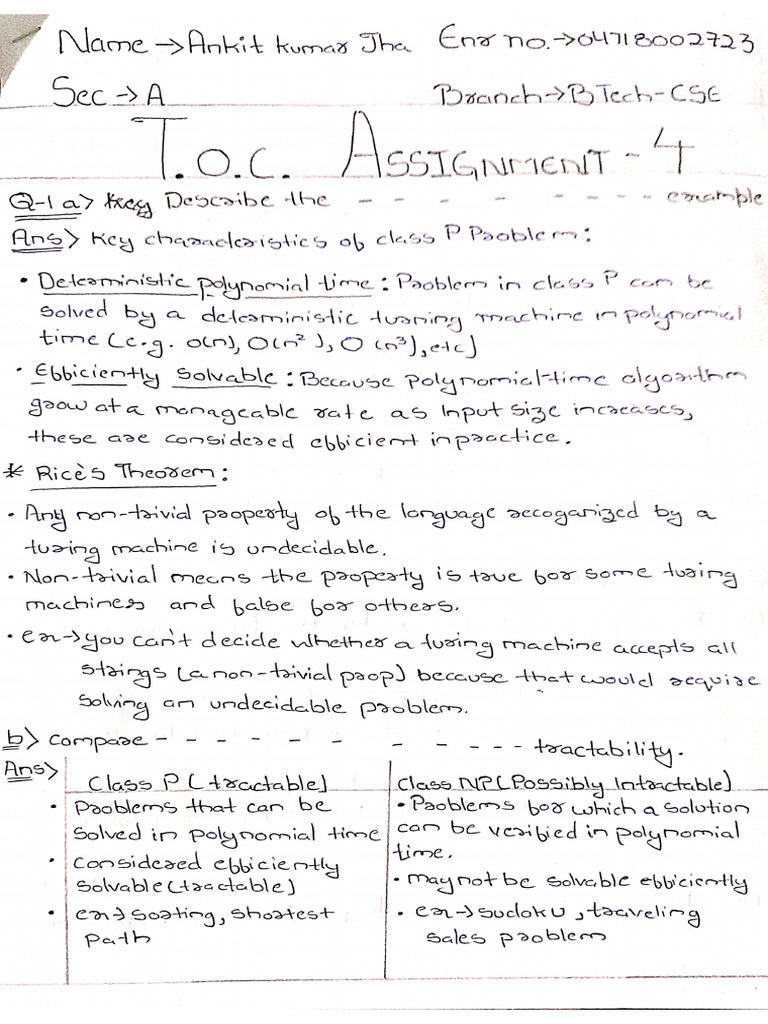 Name → Ankit Kumar Jha Enr no. → 04718002723
Sec → A Branch → BTech-CSE
T.O.C. ASSIGNMENT - 4
Q-1 a> Key Describe the - - - - - - - - example
Ans> Key characteristics of class P Problem:
• Deterministic polynomial time: Problem in class P can be
solved by a deterministic turning machine in polynomial
time (e.g. O(n), O(n²), O(n³), etc)
• Efficiently Solvable: Because polynomial-time algorithm
grow at a manageable rate as Input size increases,
these are considered efficient in practice.
* Rice's Theorem:
• Any non-trivial property of the language recoganized by a
turing machine is undecidable.
• Non-trivial means the property is true for some turing
machines and false for others.
• ex → you can't decide whether a turing machine accepts all
strings (a non-trivial prop) because that would require
solving an undecidable problem.
b> Compare - - - - - - - - - - - tractability.
Ans>
Class P (tractable)
• Problems that can be
solved in polynomial time
• Considered efficiently
solvable (tractable)
• ex → sorting, shortest
path
Class NP (Possibly Intractable)
• Problems for which a solution
can be verified in polynomial
time.
• may not be solvable efficiently
• ex → sudoku, traveling
sales problem